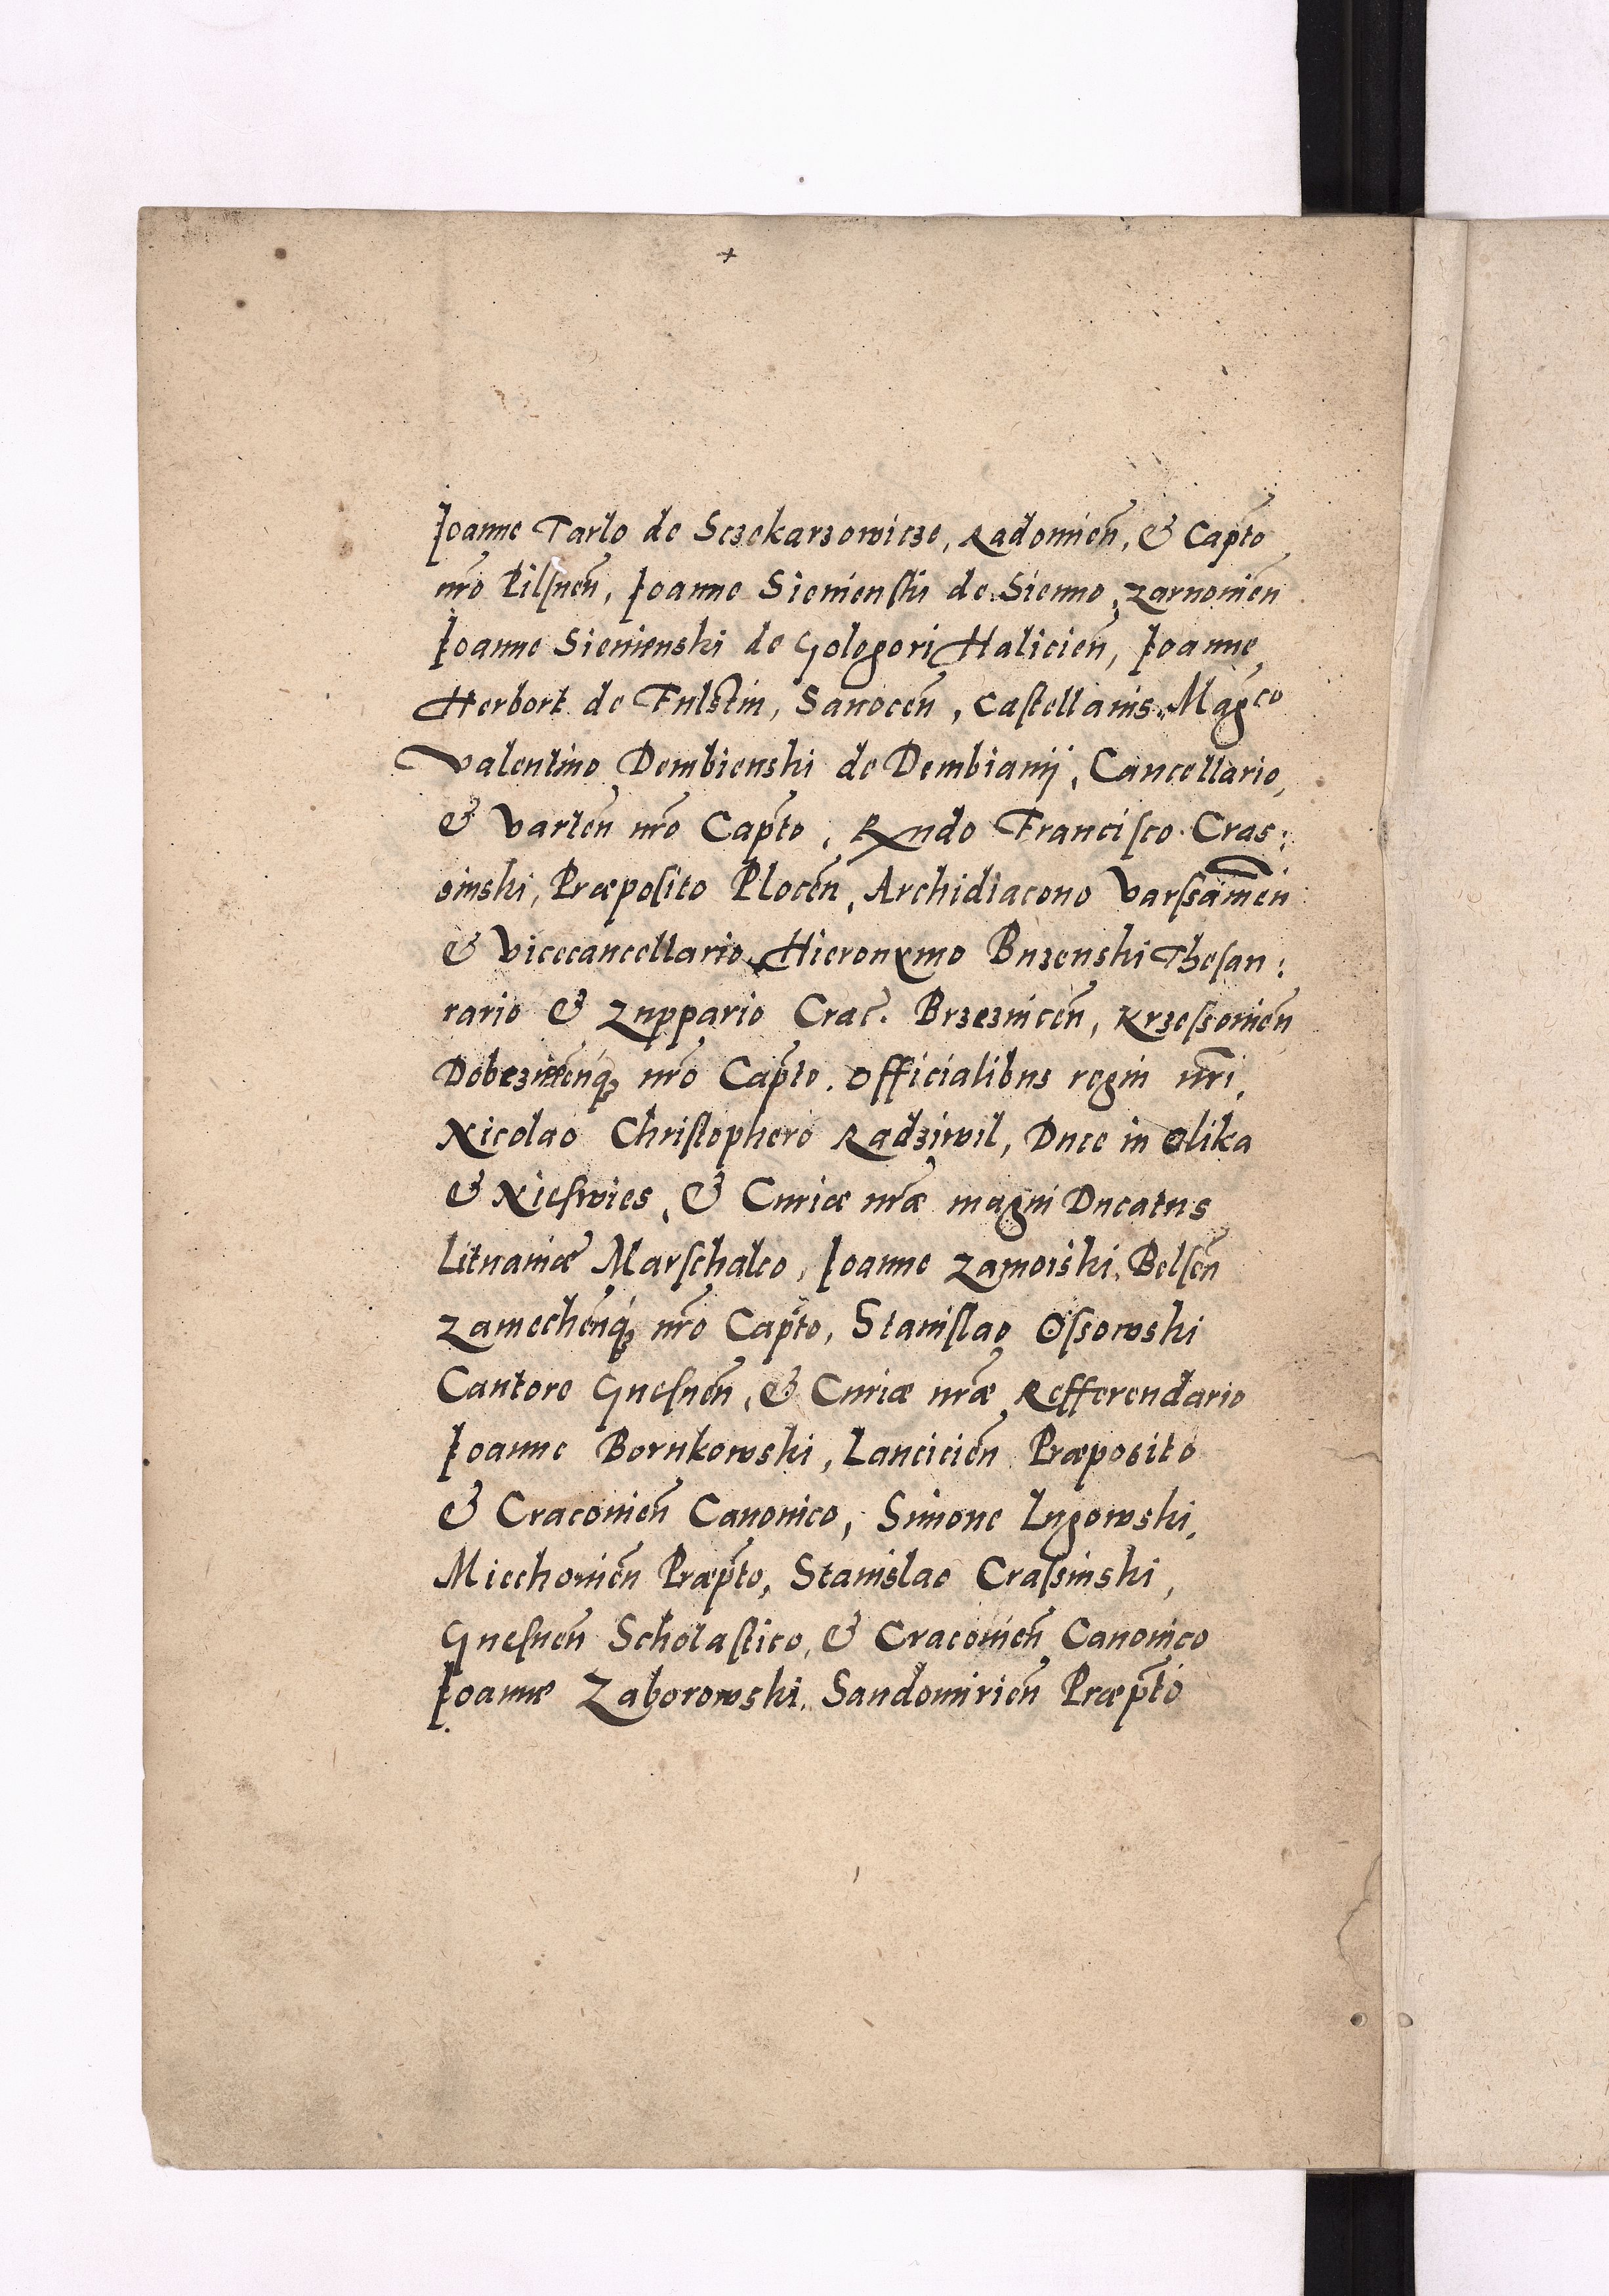 +
Joanne Tarlo de Sczekarzowicze, Radomień, & Capto
nro Pilsnen̄, Joanne Sienienski de Sienno, Zarnouien̄
Joanne Sienienski de Gologori Halicien̄, Joanne,
Herbort de Fulstin, Sanocen̄, Castellanis. Magco
Valentino Dembienski de Dembianÿ, Cancellario,
& Varten̄ nr̄o Cap̄to, Rndo Francisco Cras:
sinski, Præposito Plocen̄, Archidiacono Varsauien̄
& Vicecancellario, Hieronymo Buzenski Thesau:
rario & Zuppario Crac̄. Brzeznicen̄, Krzessouien̄
nr̄o Cap̄to. Officialibus regni nr̄i,
Nicolao Christophero Radziwil, Duce in Olika
& Nieswies, & Curiæ nr̄æ magni Ducatus
Lituaniæ Marschalco, Joanne Zamoiski, Belsen̄
Zamechen̄q3 nr̄o Cap̄to, Stanislao Ossowski
Cantore Gnesnen̄, & Curiæ nr̄æ Refferendario
Joanne Borukowski, Lancicien̄ Præposito
& Cracouien̄ Canonico, Simone Lugowski,
Miechouien̄ Præp̄to, Stanislao Crassinski,
Gnesnen̄ Scholastico, & Cracouien̄ Canonico
Joanne Zaborowski, Sandomirien̄ Præp̄to